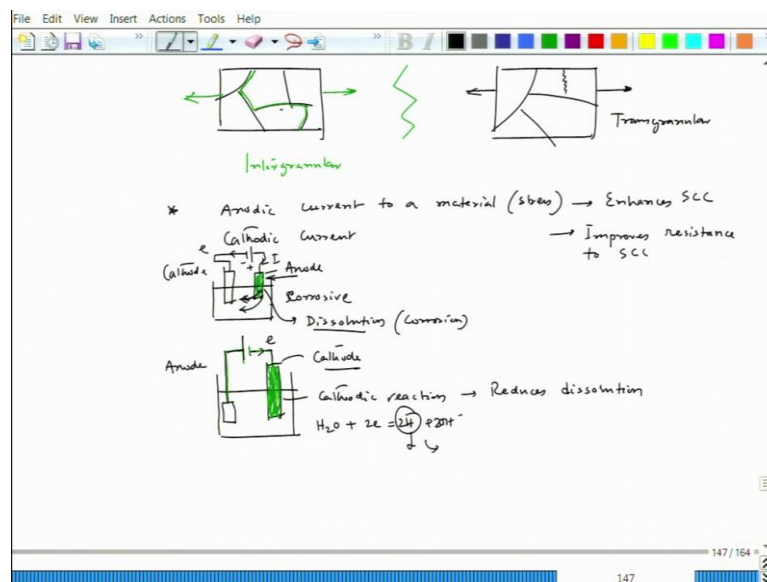 File Edit View Insert Actions Tools Help
B I
Transgranular
Intergrannular
* Anodic current to a material (stress) → Enhances SCC
Cathodic current → Improves resistance to SCC
e
- + I
Cathode Anode
Corrosive
Dissolution (corrosion)
e
Anode Cathode
Cathodic reaction → Reduces dissolution
H₂O + 2e = 2H + 2OH⁻
147 / 164
147